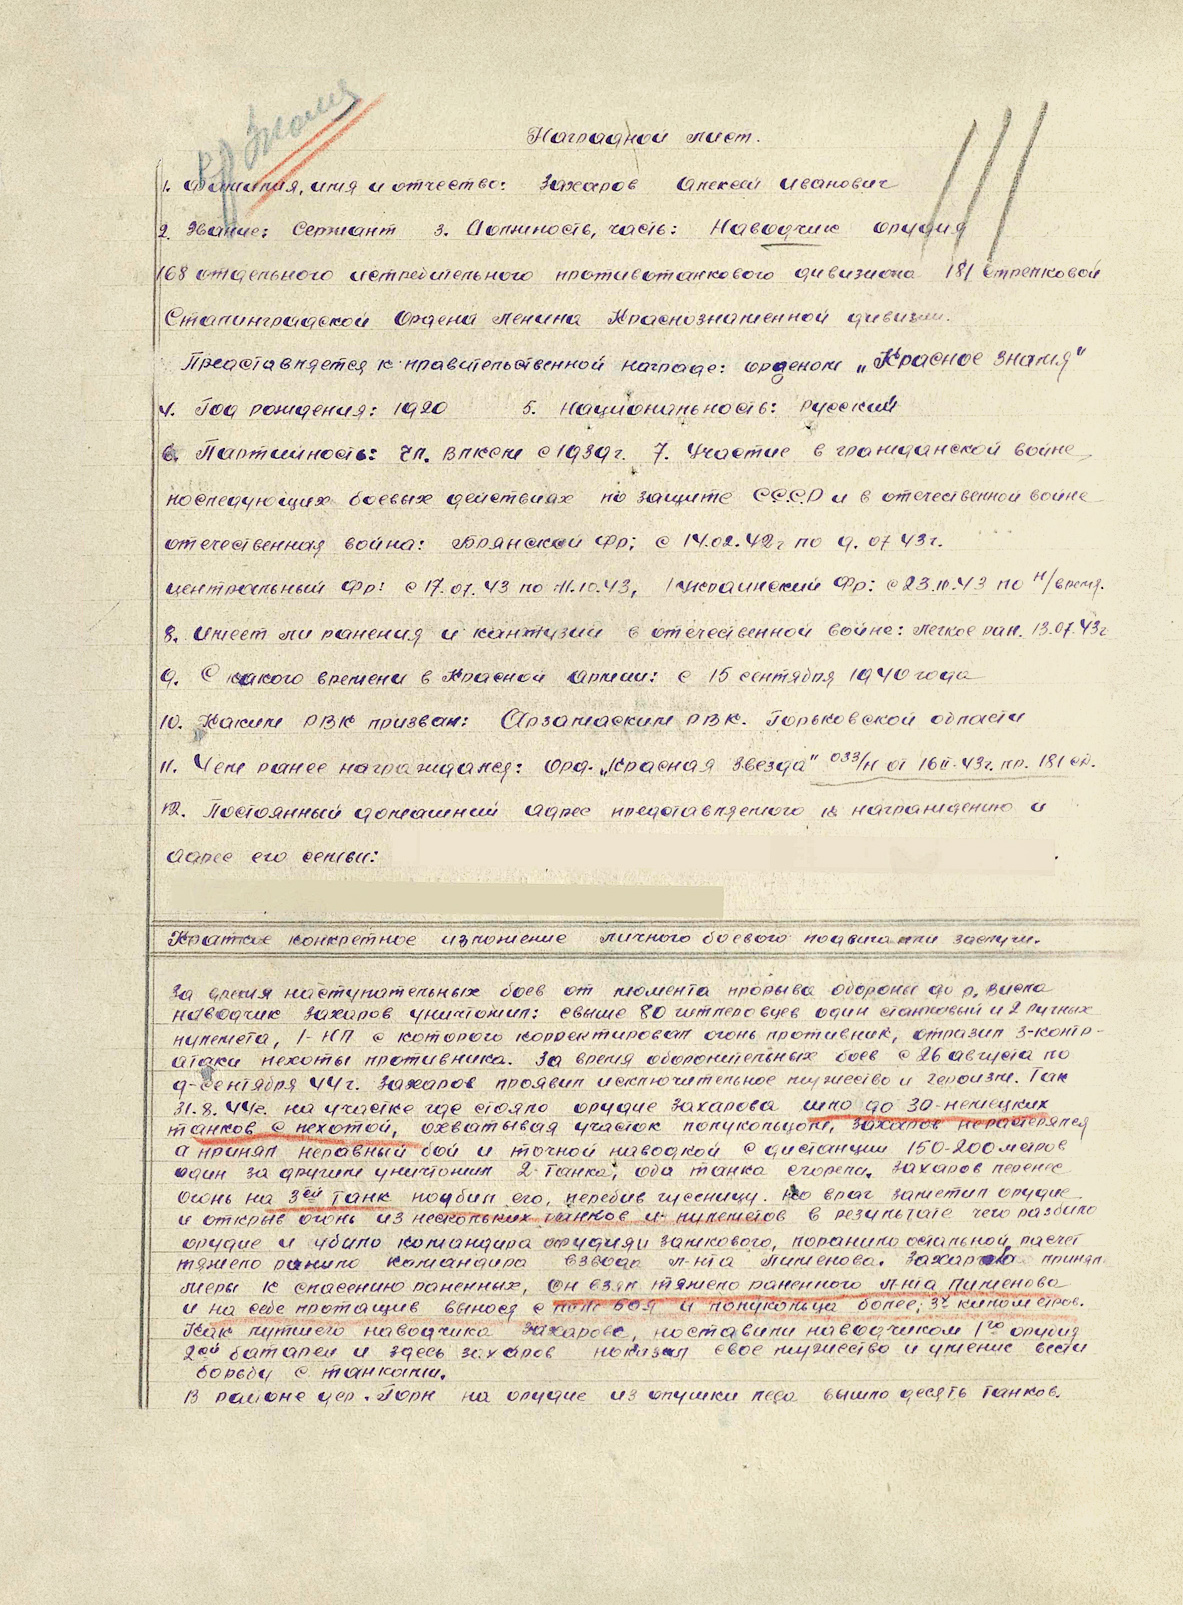 Кр Знамя
Наградной лист.
1. Фамилия, имя и отчество: Захаров Алексей Иванович
2. Звание: Сержант 3. Должность, часть: Наводчик орудия
168 отдельного истребительного противотанкового дивизиона 181 стрелковой
Сталинградской Ордена Ленина Краснознаменной дивизии.
Представляется к правительственной награде: орденом „Красное Знамя"
4. Год рождения: 1920 5. Национальность: Русский
6. Партийность: Чл. ВЛКСМ с 1939г. 7. Участие в гражданской войне,
последующих боевых действиях по защите СССР и в отечественной войне
отечественная война: Брянский Фр; с 14.02.42г по 9.07.43г.
центральный Фр: с 17.07.43 по 11.10.43, 1 Украинский Фр: с 23.10.43 по н/время.
8. Имеет ли ранения и кантузии в отечественной войне: легкое ран. 13.07.43г
9. С какого времени в Красной Армии: с 15 сентября 1940 года
10. Каким РВК призван: Арзамаским РВК. Горьковской области
11. Чем ранее награждался: Орд. „Красная Звезда" 033/н от 16.11.43г. пр. 181 сд.
12. Постоянный домашний адрес представляемого к награждению и
адрес его семьи:
Краткое конкретное изложение личного боевого подвига или заслуги.
За время наступательных боев от момента прорыва обороны до р. Висла
наводчик Захаров уничтожил: свыше 80 гитлеровцев один станковый и 2 ручных
пулемета, 1-НП с которого корректировал огонь противник, отразил 3-контр-
атаки пехоты противника. За время оборонительных боев с 26 августа по
9-сентября 44г. Захаров проявил исключительное мужество и героизм. Так
31.8.44г. на участке где стояло орудие Захарова шло до 30-немецких
танков с пехотой, охватывая участок полукольцом, Захаров нерастерялся
а принял неравный бой и точной наводкой с дистанции 150-200 метров
один за другим уничтожил 2-танка, оба танка сгорели. Захаров перенес
огонь на 3ей танк подбил его, перебив гуссеницу. Но враг заметил орудие
и открыв огонь из нескольких танков и пулеметов в результате чего разбило
орудие и убило командира орудия и замкового, поранило остальной расчет
тяжело ранило командира взвода л-нта Пименова. Захаров принял
меры к спасению раненных, он взял тяжело раненного л-нта Пименова
и на себе протащив вынося с поля боя и полукольца более, 3х километров.
Как лучшего наводчика Захарова, поставили наводчиком 1го орудия
2ой батареи и здесь Захаров показал свое мужество и умение вести
борьбу с танками.
В районе дер. Горн на орудие из опушки леса вышло десять танков.